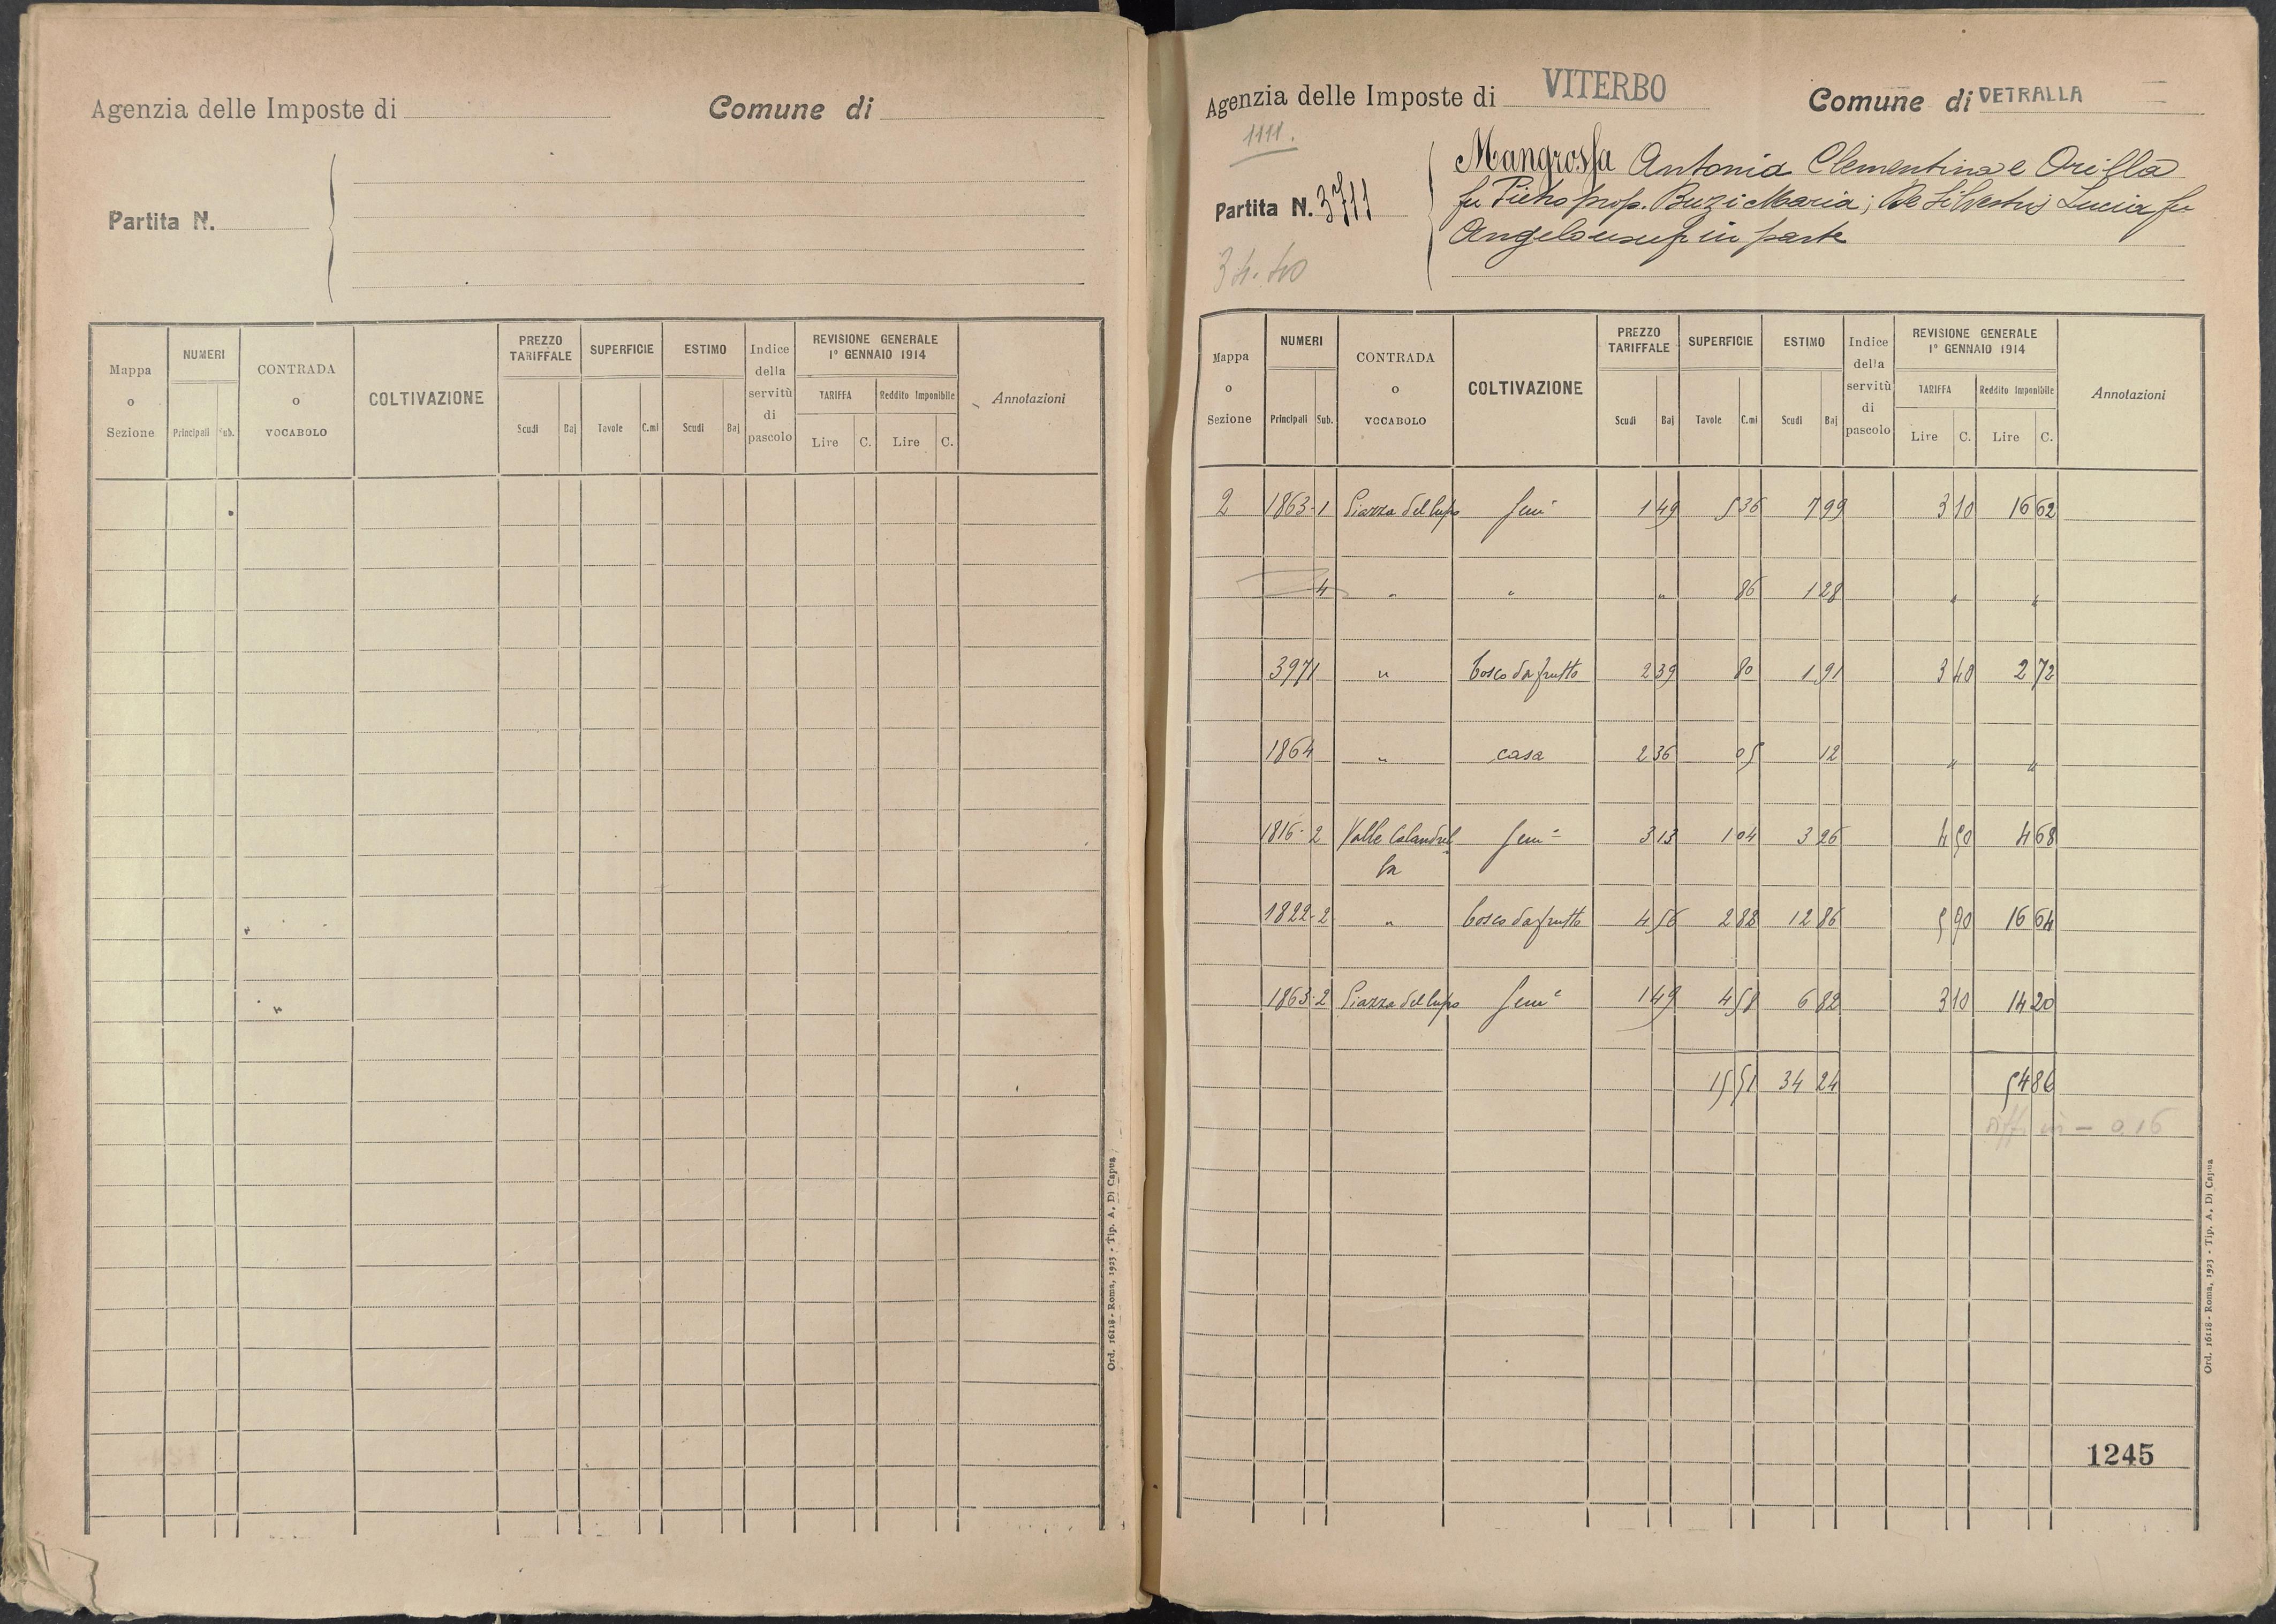 Agenzia delle Imposte di
Comune di
Partita N.
Mappa o Sezione
NUMERI
Principali
Sub.
CONTRADA o VOCABOLO
COLTIVAZIONE
PREZZO TARIFFALE
Scudi
Baj
SUPERFICIE
Tavole
C.mi
ESTIMO
Scudi
Baj
Indice della servitù di pascolo
REVISIONE GENERALE
1° GENNAIO 1914
TARIFFA
Reddito Imponibile
Lire
C.
Lire
C.
Annotazioni
Ord. 16118 - Roma, 1923 - Tip. A. Di Capua
Agenzia delle Imposte di VITERBO
Comune di VETRALLA
1111.
Partita N. 3711
34.40
Mangrossa Antonia Clementina e Orilla
fu Pietro prop. Buzi Maria; De Silvestris Lucia fu
Angelo usuf in parte
Mappa o Sezione
NUMERI
Principali
Sub.
CONTRADA o VOCABOLO
COLTIVAZIONE
PREZZO TARIFFALE
Scudi
Baj
SUPERFICIE
Tavole
C.mi
ESTIMO
Scudi
Baj
Indice della servitù di pascolo
REVISIONE GENERALE
1° GENNAIO 1914
TARIFFA
Reddito Imponibile
Lire
C.
Lire
C.
Annotazioni
2 1863-1 Piazza del Lupo Sem° 1 49 5 36 7 99 3 10 16 62
4 " " " 86 1 28 " "
3971 " bosco da frutto 2 39 80 1 91 3 40 2 72
1864 " casa 2 36 05 12 " "
1816-2 Valle Calandrel Sem° 3 13 1 04 3 26 4 50 4 68
la
1822-2 " bosco da frutto 4 56 2 82 12 86 5 90 16 64
1863-2 Piazza del Lupo Sem° 1 49 4 58 6 82 3 10 14 20
15 51 34 24 54 86
Diff. in - 0,16
1245
Ord. 16118 - Roma, 1923 - Tip. A. Di Capua